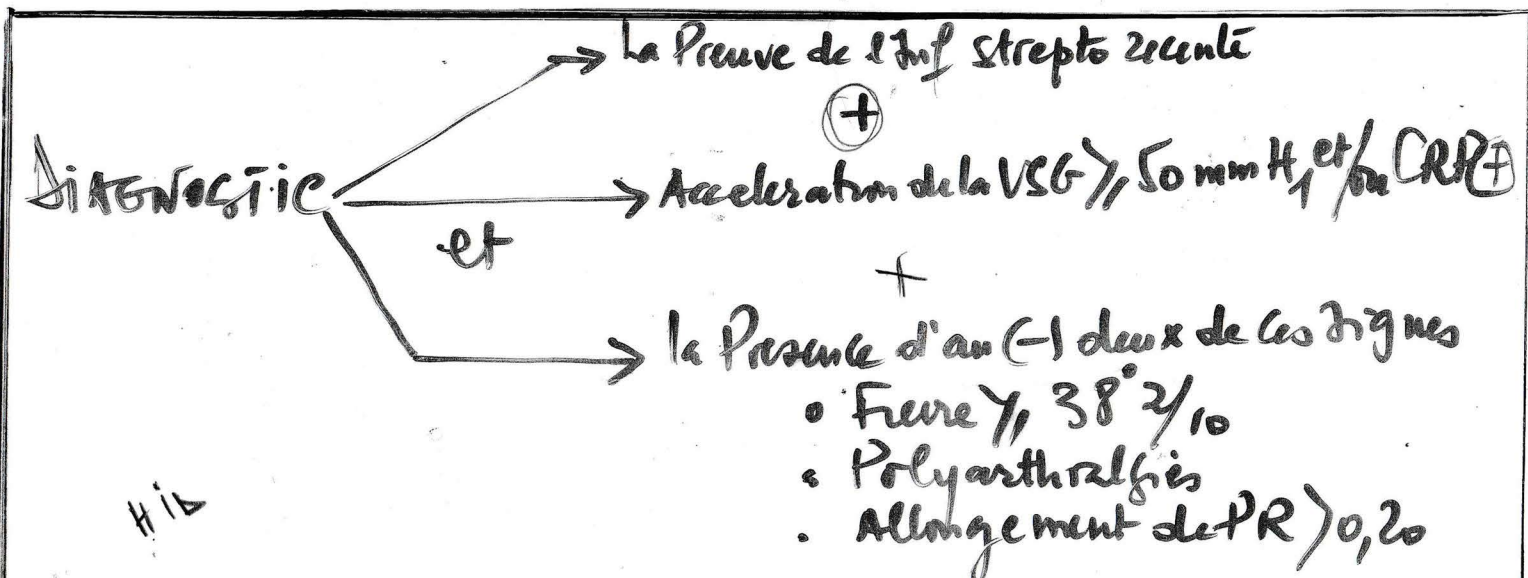 La Preuve de l'Inf strepto recente
+
DiAGNOSTiC
et
Acceleration de la VSG ⩾ 50 mm H1 et/ou CRP ⊕
+
la Presence d'au (-) deux de ces signes
• Fievre ⩾ 38°2/10
• Polyarthralgies
• Allongement de PR > 0,20